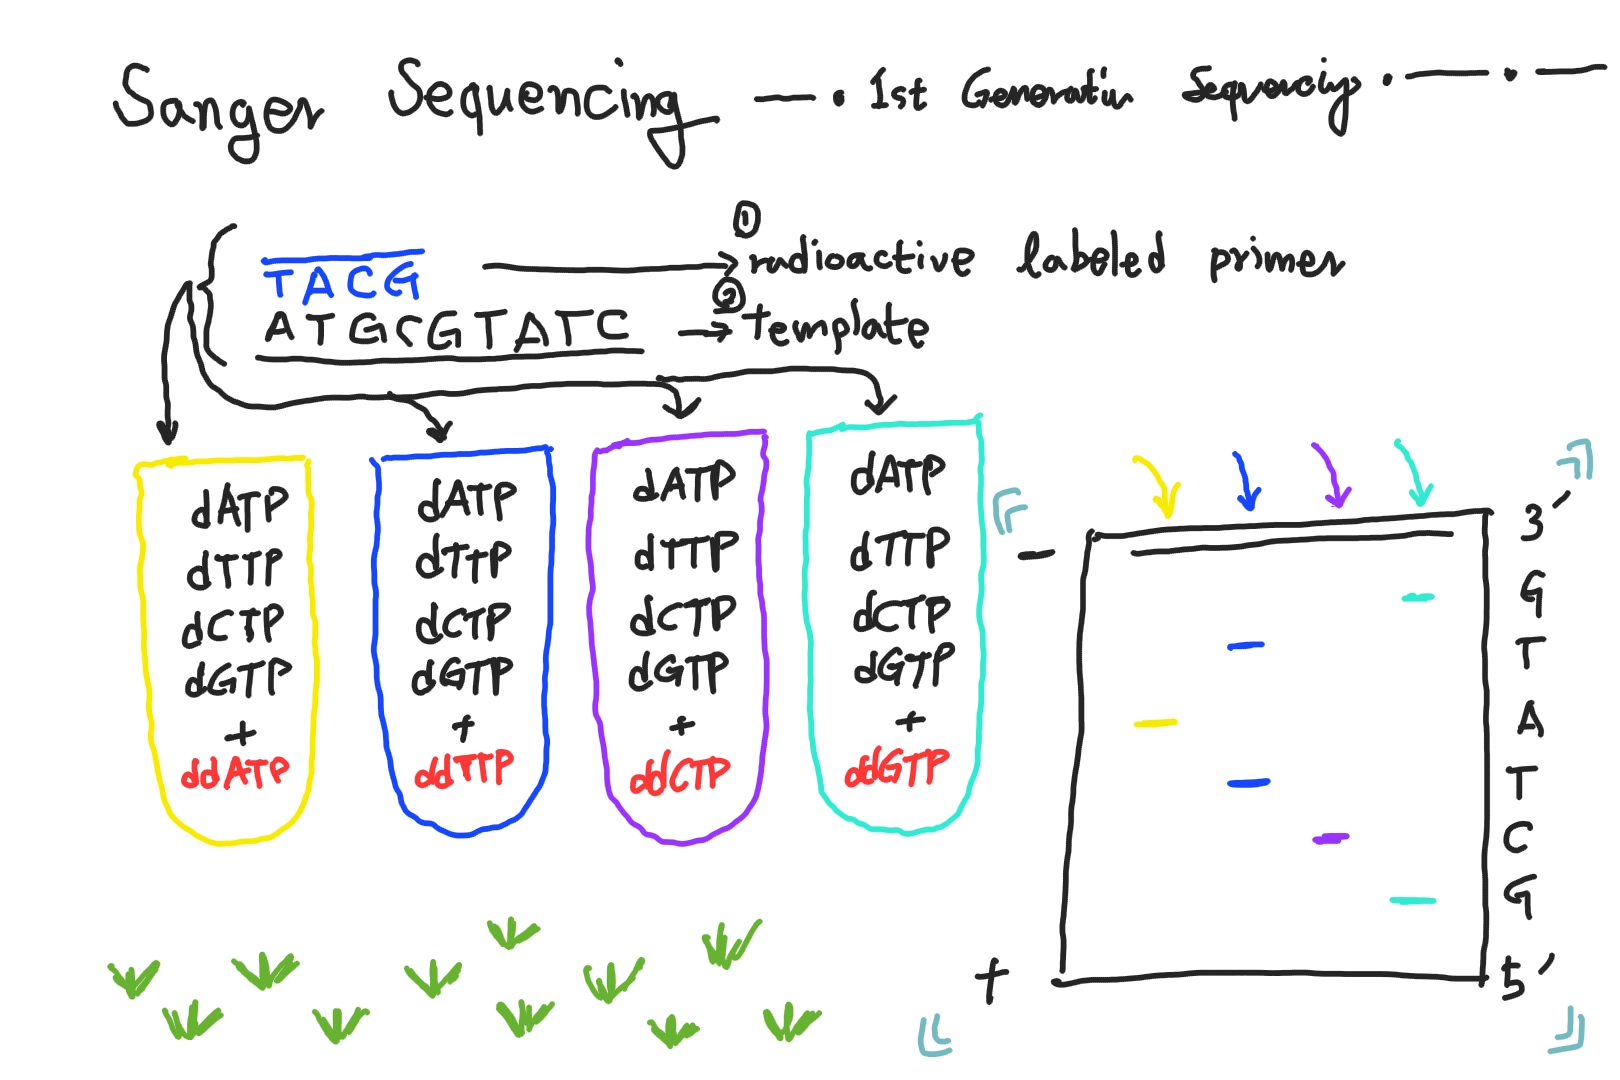 Sanger Sequencing —. 1st Generation Sequencing. — . —
①
TACG → radioactive labeled primer
②
ATGCGTATC → template
dATP dATP dATP dATP
dTTP dTTP dTTP dTTP
dCTP dCTP dCTP dCTP
dGTP dGTP dGTP dGTP
+ + + +
ddATP ddTTP ddCTP ddGTP
- 3'
G
T
A
T
C
G
+ 5'